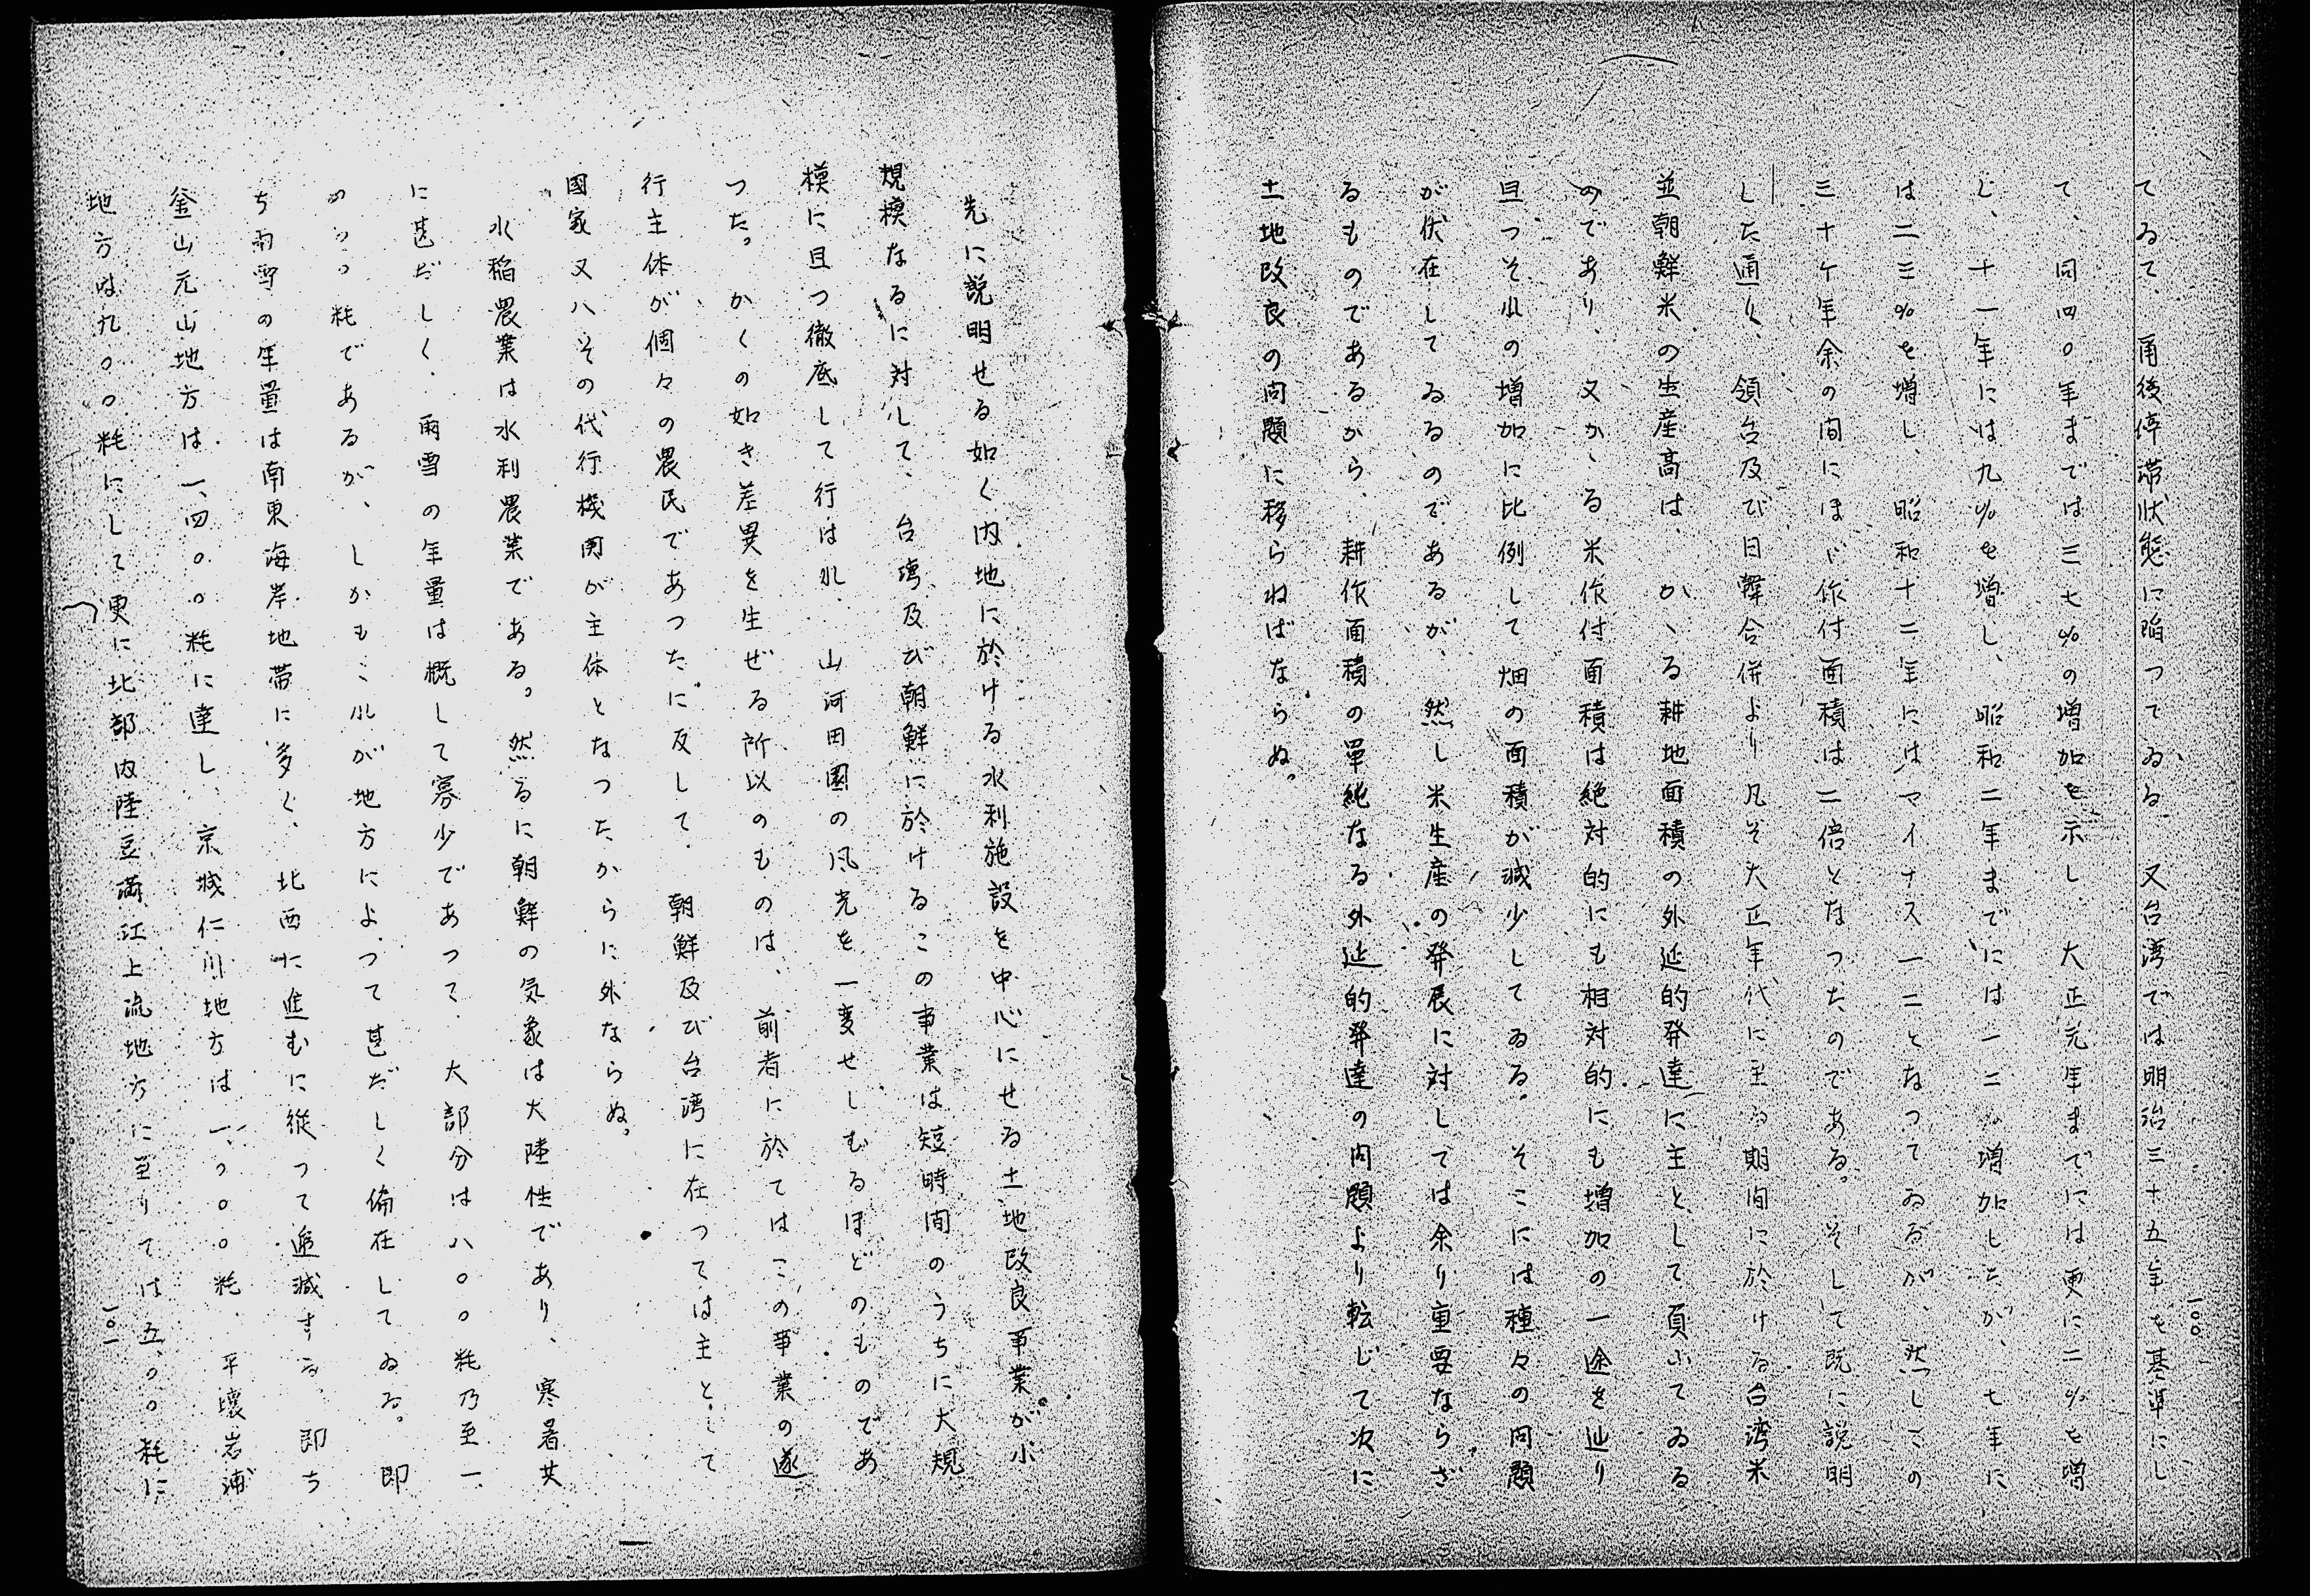 てゐて、爾後停滞状態に陥つてゐる 又台湾では明治三十五年を基準にし
て、同四〇年までは三七％の増加を示し、大正元年までには更に二％を増
し、十一年には九％を増し、昭和二年までには一二％増加したが、七年に
は二三％を増し、昭和十二年にはマイナス一二となつてゐるが、然しこの
三十ケ年余の間にほゞ作付面積は二倍となつたのである。そして既に説明
した通り、領台及び日韓合併より凡そ大正年代に至る期間に於ける台湾米
並朝鮮米の生産高は、かゝる耕地面積の外延的発達に主として負ふてゐる
のであり、又かゝる米作付面積は絶対的にも相対的にも増加の一途を辿り
且つそれの増加に比例して畑の面積が減少してゐる。そこには種々の問題
が伏在してゐるのであるが、然し米生産の発展に対しては余り重要ならざ
るものであるから、耕作面積の単純なる外延的発達の問題より転じて次に
土地改良の問題に移らねばならぬ。
一〇〇
先に説明せる如く内地に於ける水利施設を中心にせる土地改良事業が小
規模なるに対して、台湾及び朝鮮に於けるこの事業は短時間のうちに大規
模に且つ徹底して行はれ、山河田園の風光を一変せしむるほどのものであ
つた。かくの如き差異を生ぜる所以のものは、前者に於てはこの事業の遂
行主体が個々の農民であつたに反して、朝鮮及び台湾に在つては主として
國家又ハその代行機関が主体となつたからに外ならぬ。
水稲農業は水利農業である。然るに朝鮮の気象は大陸性であり、寒暑共
に甚だしく、雨雪の年量は概して寡少であつて、大部分は八〇〇粍乃至一
〇〇〇粍であるが、しかもこれが地方によつて甚だしく偏在してゐる。即
ち雨雪の年量は南東海岸地帯に多く、北西に進むに従つて逓減する、即ち
釜山元山地方は一、四〇〇粍に達し、京城仁川地方は一、〇〇〇粍、平壌岩浦
地方は九〇〇粍にして更に北部内陸豆満江上流地方に至りては五〇〇粍に
一〇一